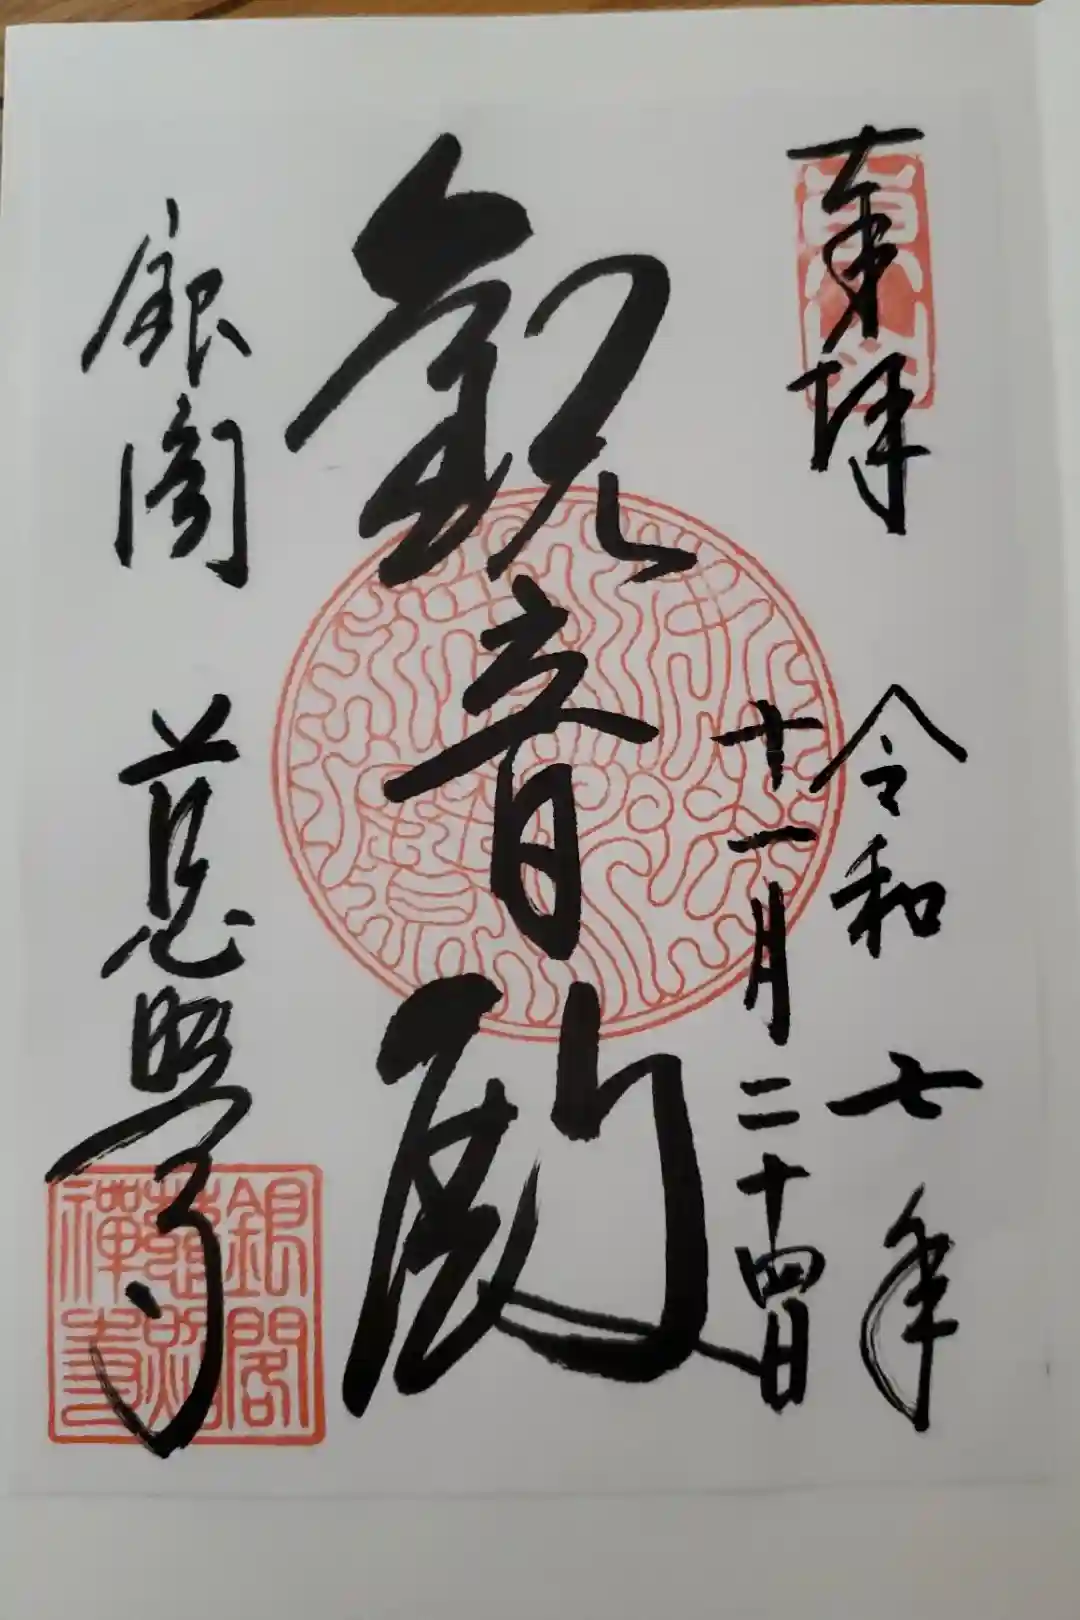 奉拝
令和七年
十一月二十四日
観音殿
銀閣 慈照寺
銀閣
慈照
禅寺